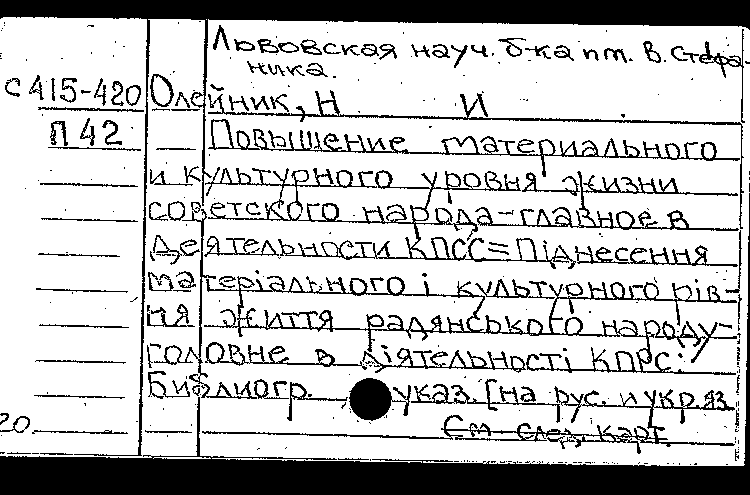 Львовская науч. б-ка пт. В. Стефа-
ника.
С 415-420 Олейник, Н И
П 42 Повышение материального
и культурного уровня жизни
советского народа-главное в
деятельности КПСС=Піднесення
матеріального і культурного рів-
ня життя радянського народу-
головне в діяльності КПРС:
Библиогр. указ. [на рус. и укр.яз.
20. См след. карт.